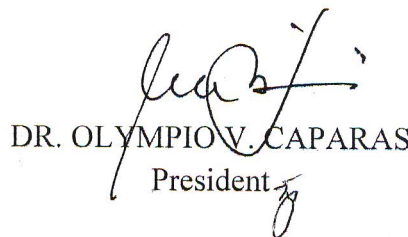 DR. OLYMPIO V. CAPARAS
President